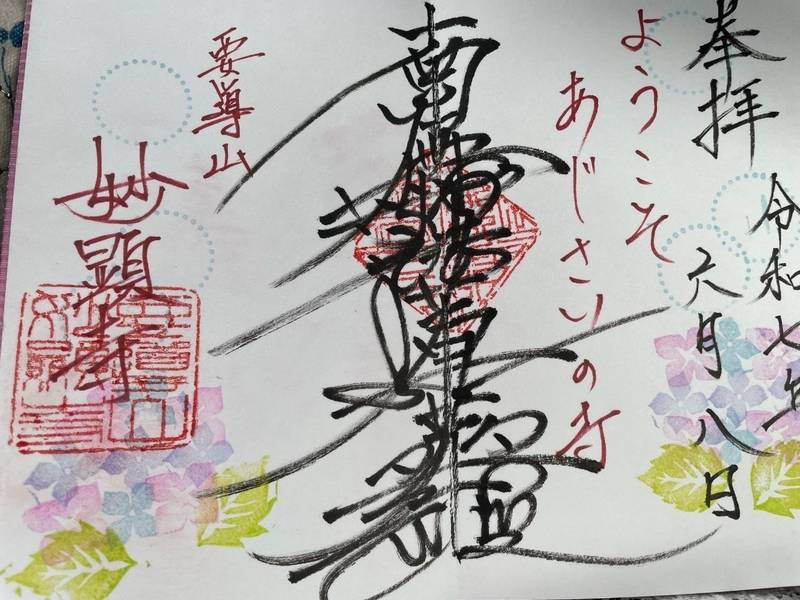 奉拝
令和七年
六月八日
ようこそ
あじさいの寺
南無妙法蓮華経
要導山
妙顕寺